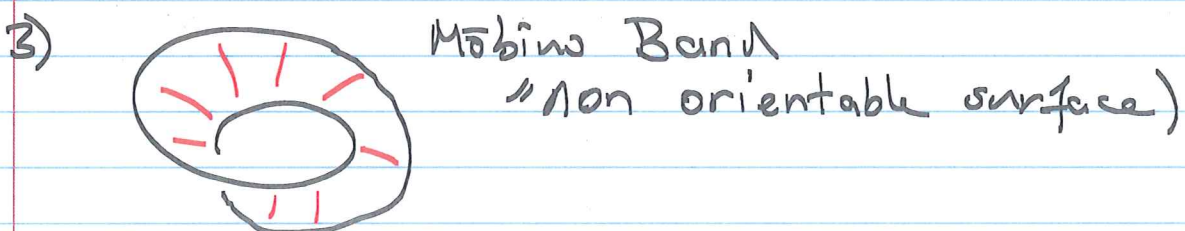 3) Möbius Band
"non orientable surface)